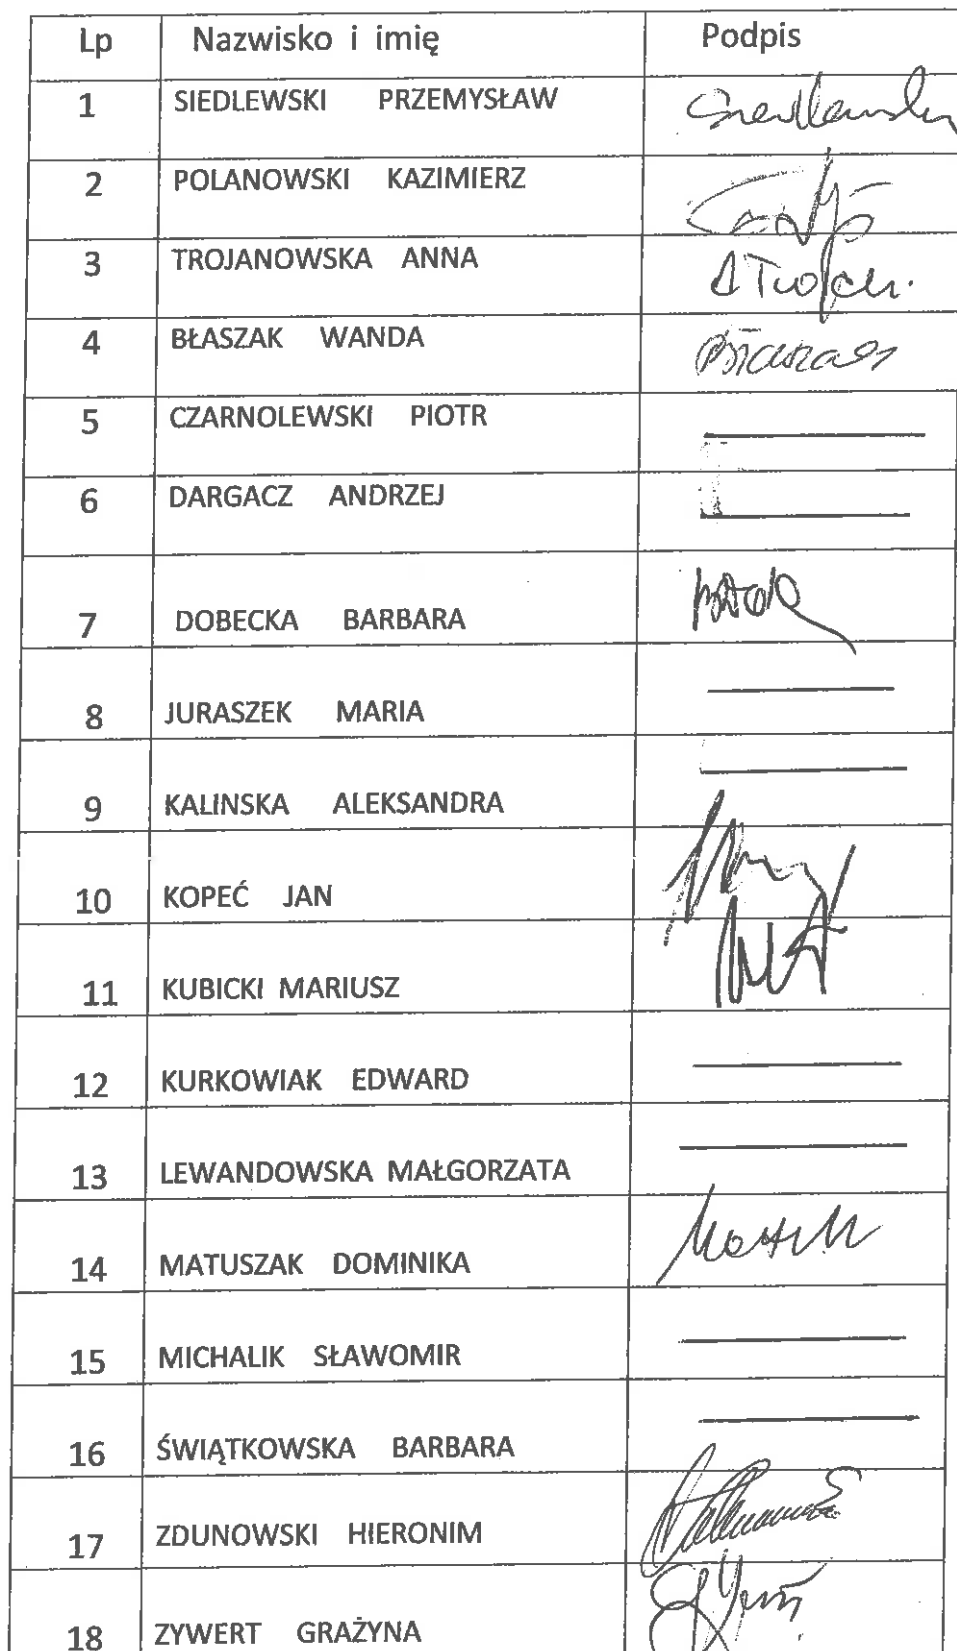 Lp Nazwisko i imię Podpis
1 SIEDLEWSKI PRZEMYSŁAW
2 POLANOWSKI KAZIMIERZ
3 TROJANOWSKA ANNA
4 BŁASZAK WANDA
5 CZARNOLEWSKI PIOTR
6 DARGACZ ANDRZEJ
7 DOBECKA BARBARA
8 JURASZEK MARIA
9 KALINSKA ALEKSANDRA
10 KOPEĆ JAN
11 KUBICKI MARIUSZ
12 KURKOWIAK EDWARD
13 LEWANDOWSKA MAŁGORZATA
14 MATUSZAK DOMINIKA
15 MICHALIK SŁAWOMIR
16 ŚWIĄTKOWSKA BARBARA
17 ZDUNOWSKI HIERONIM
18 ZYWERT GRAŻYNA